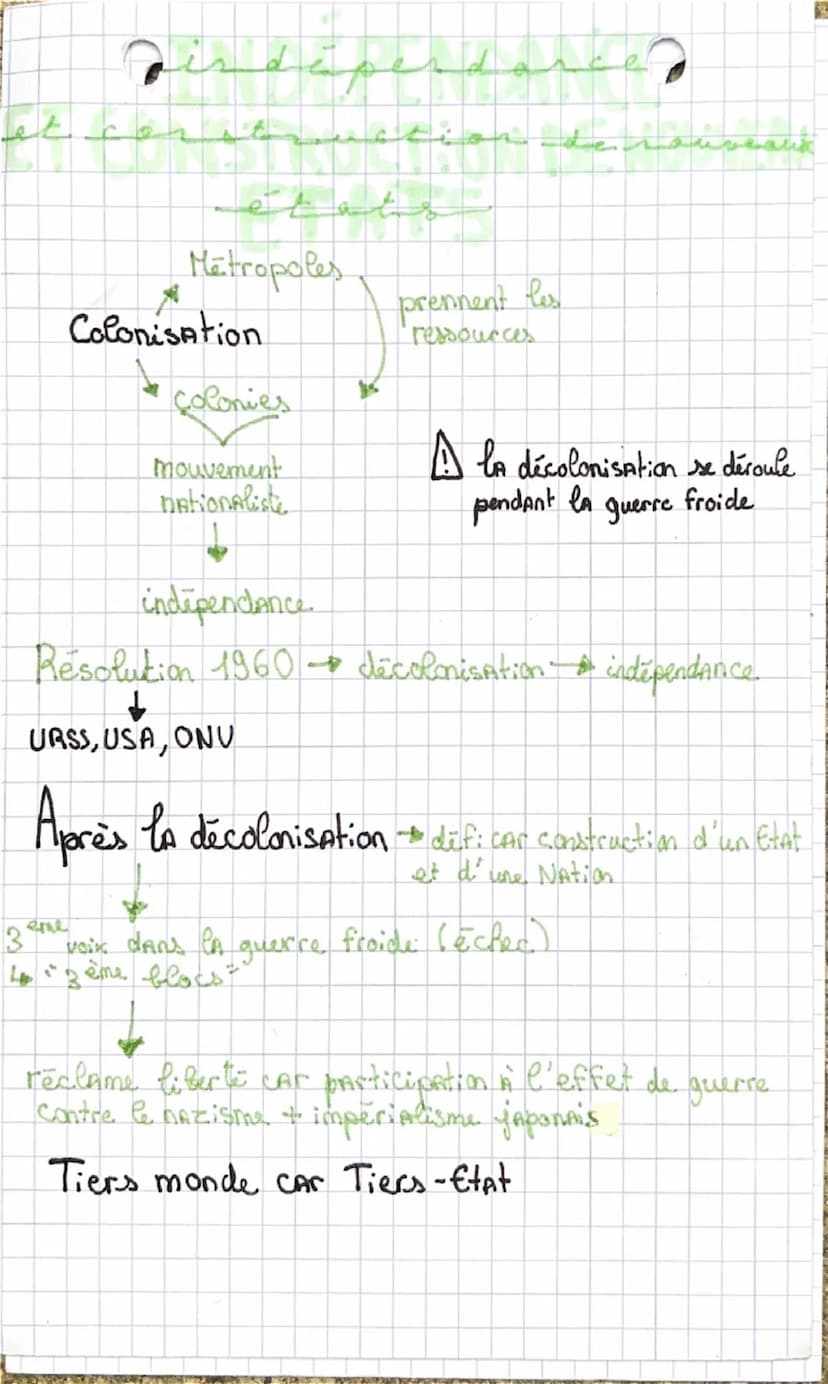 indépendance
INDÉPENDANCE
et construction de nouveaux
ET CONSTRUCTION DE NOUVEAUX
états
ÉTATS
Métropoles
prennent les
ressources
Colonisation
colonies
mouvement
nationaliste
⚠ la décolonisation se déroule
pendant la guerre froide
indépendance
Résolution 1960 → décolonisation → indépendance
URSS, USA, ONU
Après la décolonisation → défi car construction d'un Etat
et d'une Nation
3ème voix dans la guerre froide (échec)
↳ "3ème blocs"
réclame liberté car participation à l'effet de guerre
contre le nazisme + impérialisme japonais
Tiers monde car Tiers-Etat